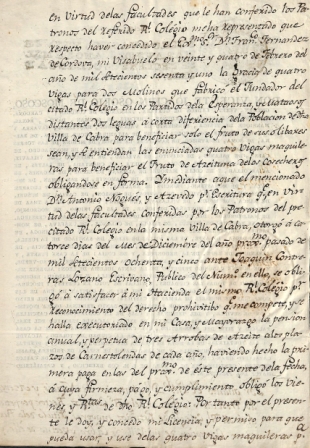 en virtud de las facultades que le han conferido los Pa-
tronos del referido Rl. Colegio me ha representado que
respecto haver concedido el Exmo. Sor. Dn. Fran.co Fernandez
de Cordova, mi Visabuelo en veinte y quatro de Febrero del
año de mil setecientos sesenta y uno la Gracia de quatro
Vigas para dos Molinos que fabricó el Fundador del
citado Rl. Colegio en los Partidos de la Esperanza, y
distantes dos leguas á corta diferencia de la Poblacion de
Villa de Cabra para beneficiar solo el fruto de sus olibares
sean, y se entiendan las enunciadas quatro Vigas maquile-
ras para beneficiar el Fruto de Azeituna de los Cosecheros
obligandose en forma. Y mediante a que el mencionado
Dn. Antonio Nogués, y Azevedo pr. Escritura qe. en vir-
tud de las facultades Conferidas por los Patronos del pre-
citado Rl. Colegio en la misma Villa de Cabra, otorgó á ca-
torce dias del Mes de Diciembre del año proximo pasado de
mil setecientos ochenta, y cinco ante Joaquin Contre-
ras Lozano Escribano, Publico del Num.o en ella, se obli-
gó á satisfacer á mi Hacienda el mismo Rl. Colegio pr.
reconocimiento del derecho prohivitibo qe. me compete, y se
halla executoriado en mi Casa, y Mayorazgo la pension
anual, y perpetua de tres Arrobas de Azeite al pla-
zo de Carnestolendas de cada año, haviendo hecho la pri-
mera paga en las del proximo de este presente de la fecha,
á cuya firmeza, pago, y cumplimiento obligó los Vie-
nes, y Rentas de dho. Rl. Colegio: Por tanto por el presente
le doy, y concedo mi Licencia, y permiso para que
pueda usar, y use de las quatro Vigas maquileras pa.